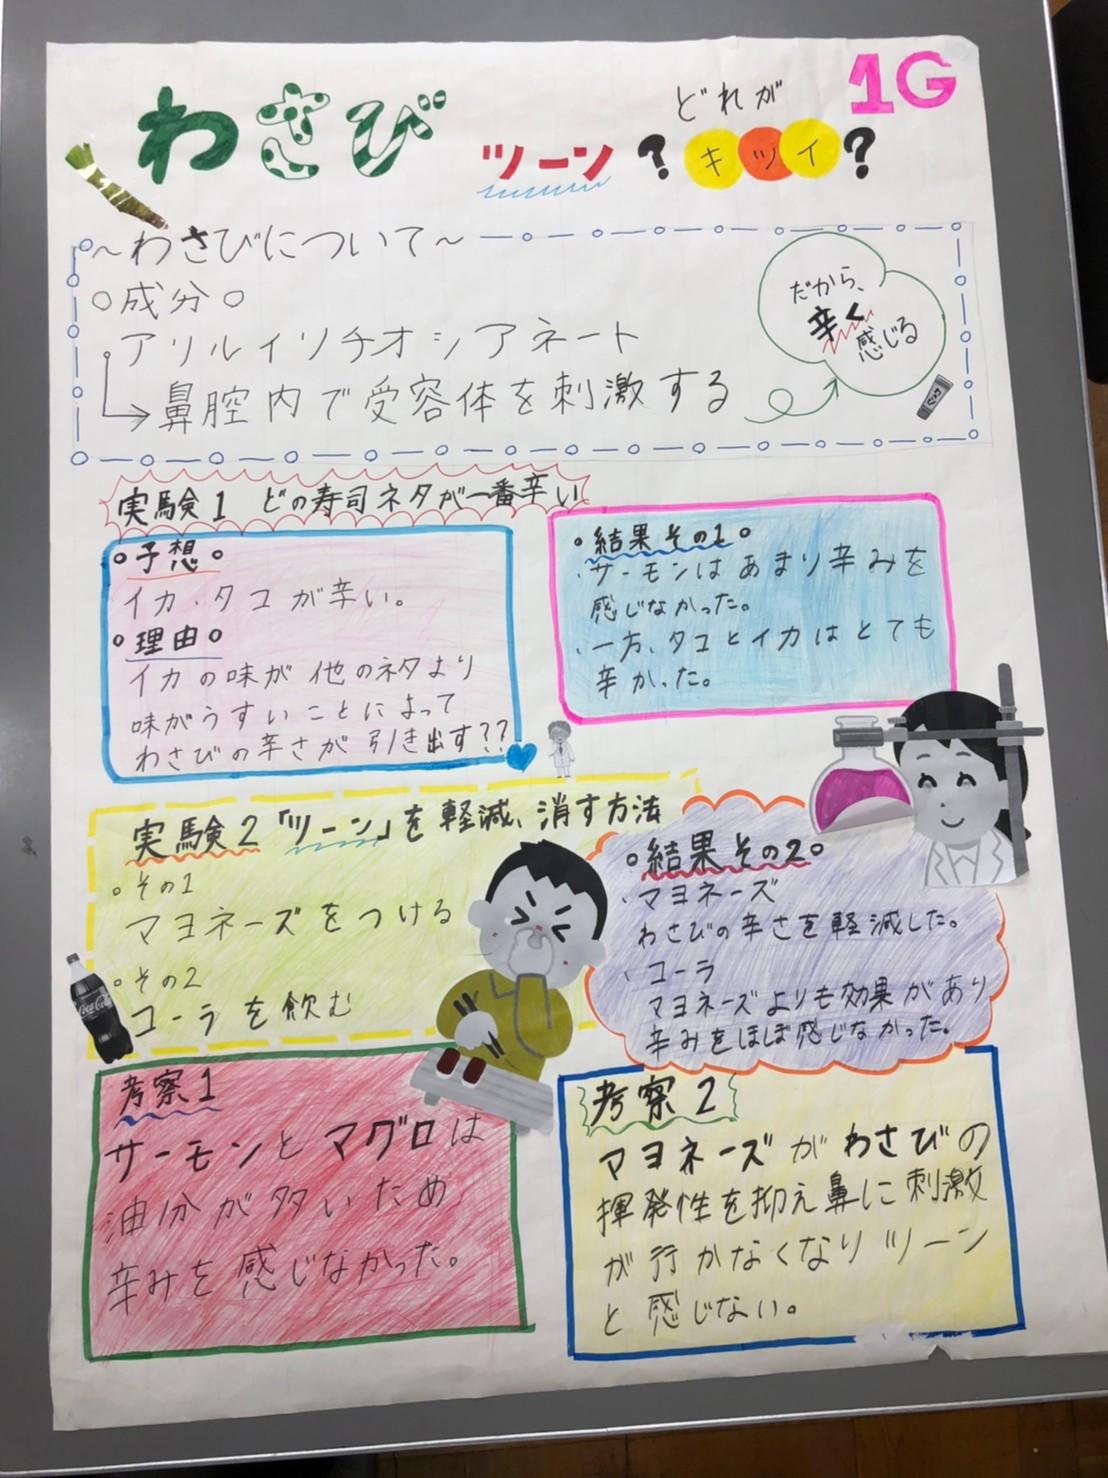 わさび
ツーン
どれが
?キツイ?
1G
～わさびについて～
○成分○
アリルイソチオシアネート
→鼻腔内で受容体を刺激する
だから、
辛く
感じる
実験1 どの寿司ネタが一番辛い
○予想○
イカ、タコが辛い。
○理由○
イカの味が他のネタより
味がうすいことによって
わさびの辛さが引き出す??
○結果その1○
・サーモンはあまり辛みを
感じなかった。
・一方、タコとイカはとても
辛かった。
実験2「ツーン」を軽減、消す方法
○その1
マヨネーズをつける
○その2
コーラを飲む
○結果その2○
・マヨネーズ
わさびの辛さを軽減した。
・コーラ
マヨネーズよりも効果があり
辛みをほぼ感じなかった。
考察1
サーモンとマグロは
油分が多いため
辛みを感じなかった。
考察2
マヨネーズがわさびの
揮発性を抑え鼻に刺激
が行かなくなりツーン
と感じない。
Coca-Cola